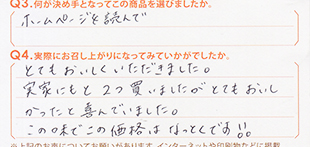 Q3.何が決め手となってこの商品を選びましたか。
ホームページを読んで
Q4.実際にお召し上がりになってみていかがでしたか。
とてもおいしくいただきました。
実家にもと2つ買いましたがとてもおいし
かったと喜んでいました。
この味でこの価格はなっとくです!!
※上記のお声についてお願いがあります。インターネットや印刷物などに掲載